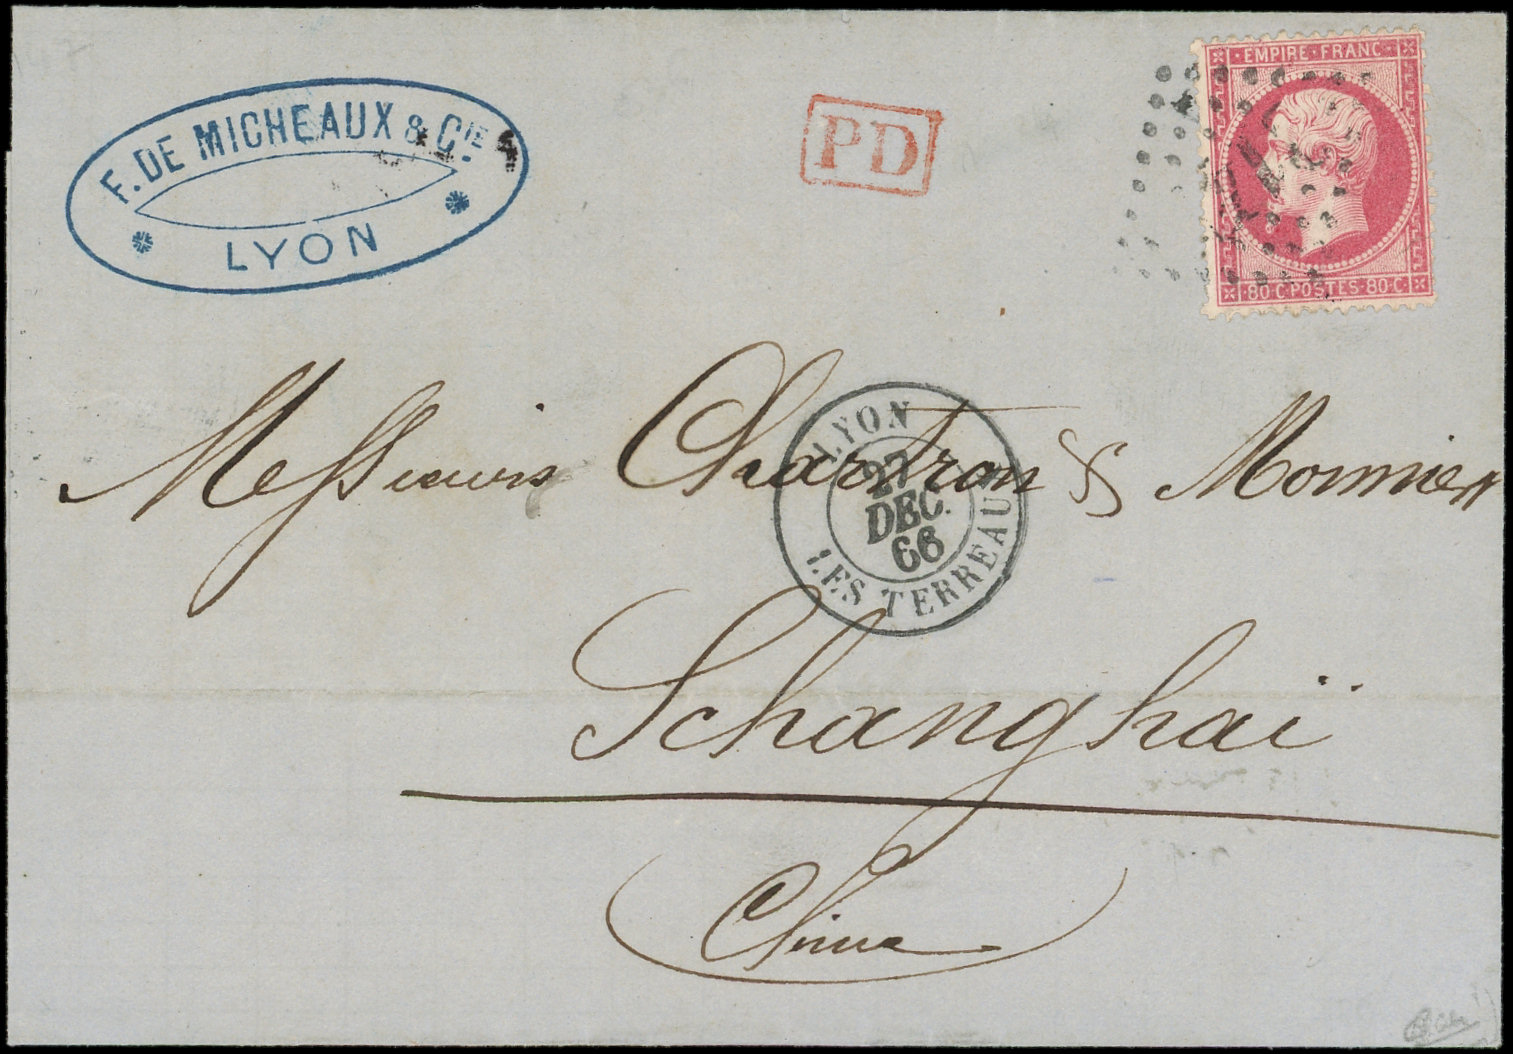 F. DE MICHEAUX & CIE.
LYON
PD
EMPIRE · FRANC ·
· 80 · C · POSTES · 80 · C ·
Messieurs Chartron & Monnier
LYON
27
DEC.
66
LES TERREAUX
Schanghaï
Chine